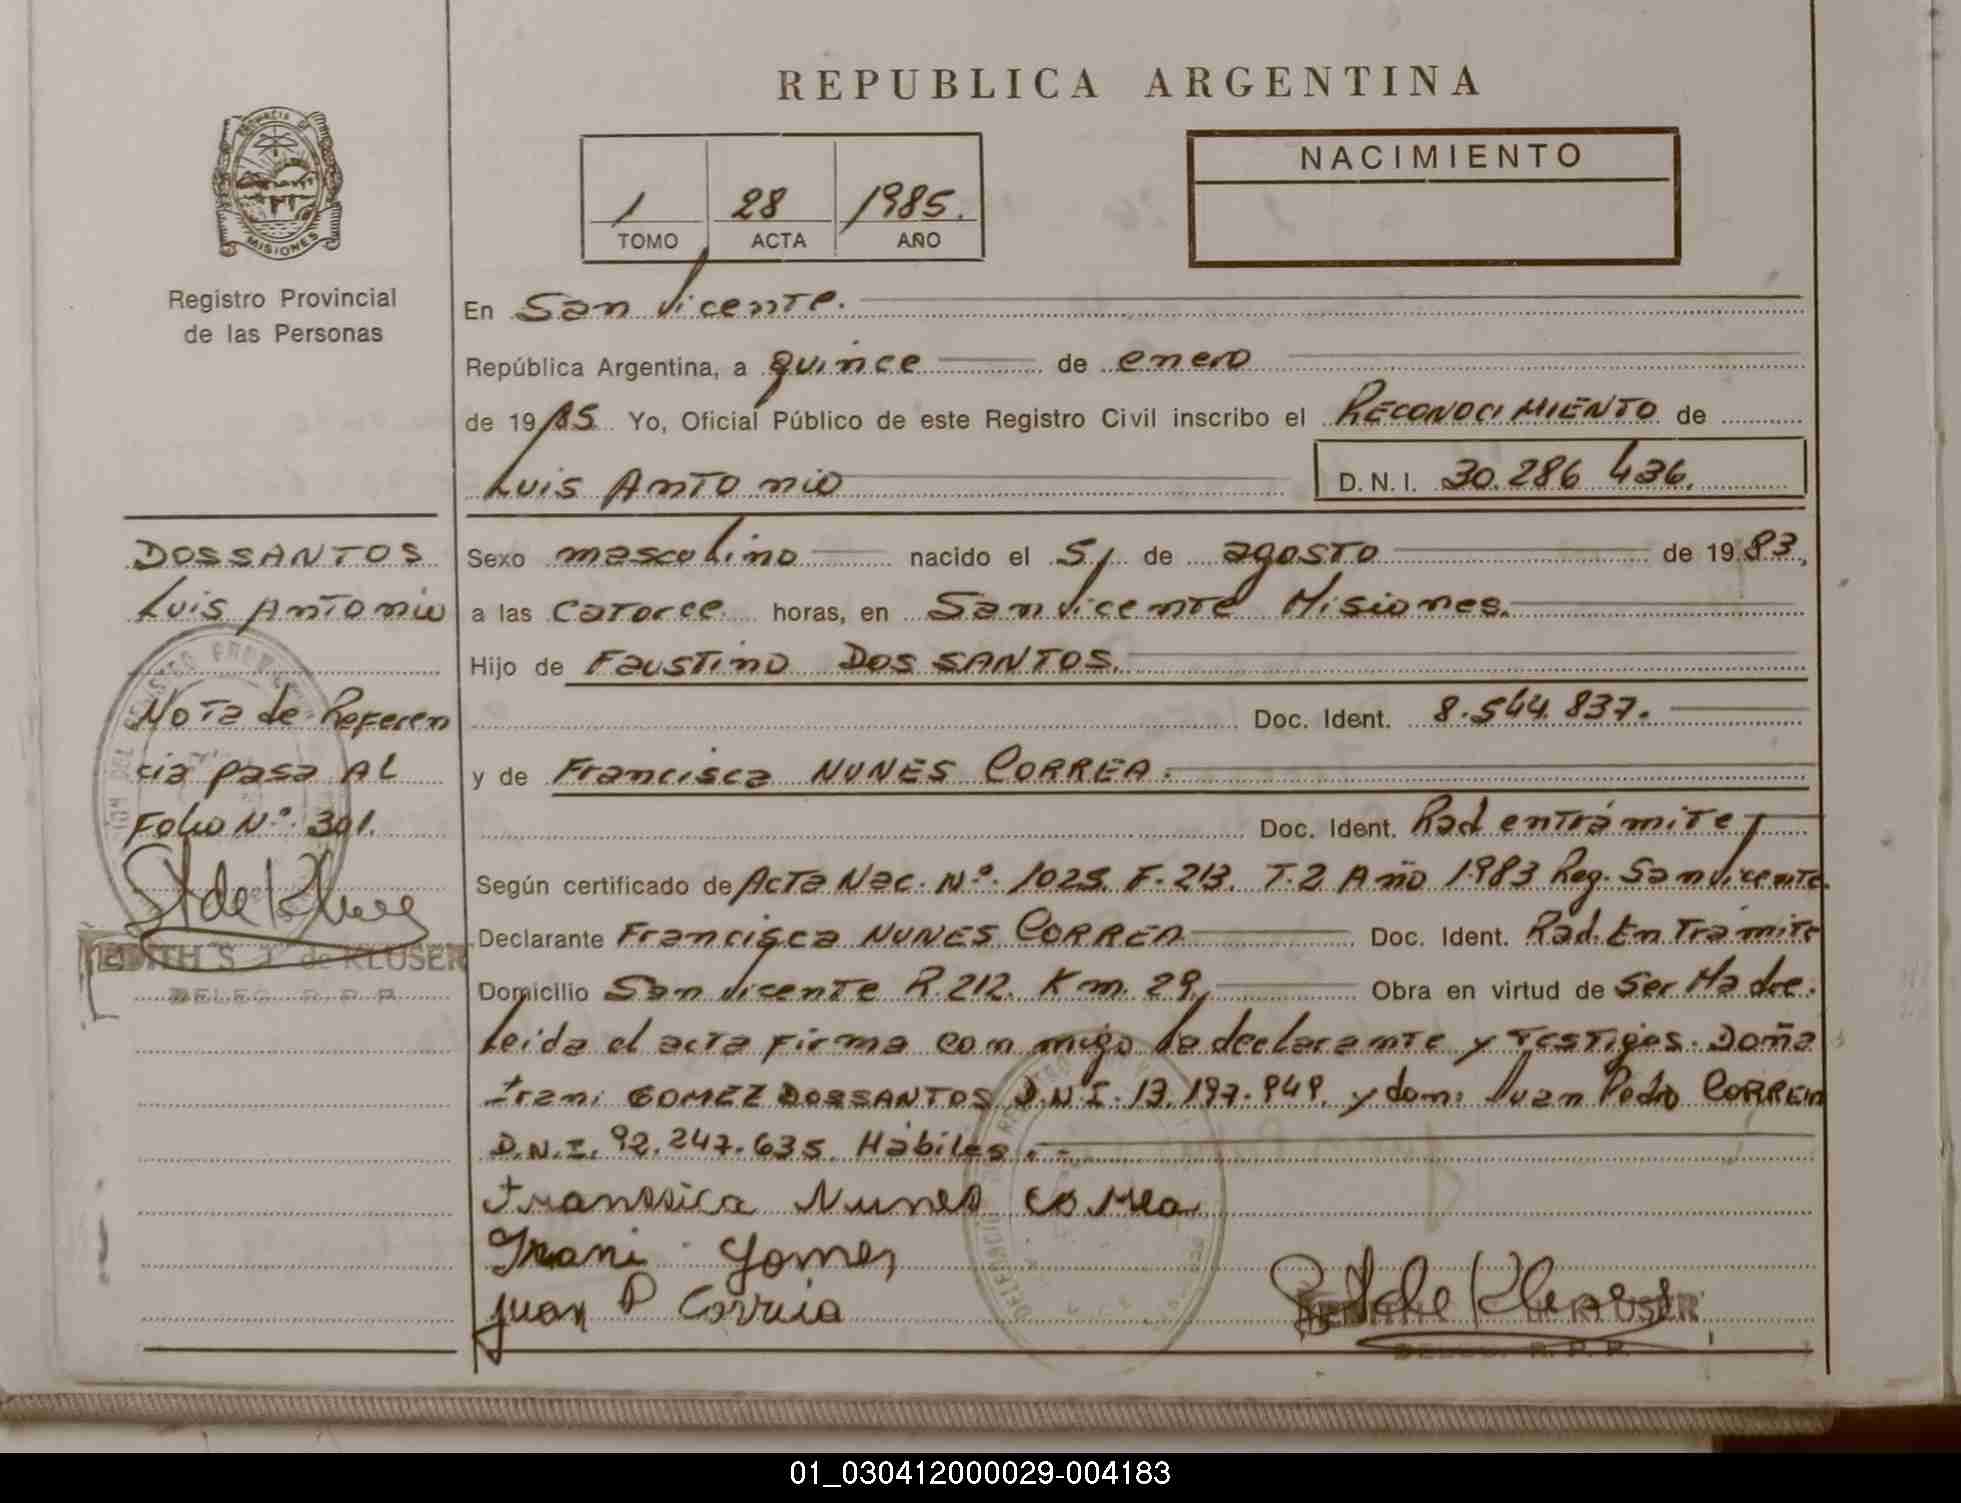 REPUBLICA ARGENTINA
PROVINCIA DE
MISIONES
Registro Provincial
de las Personas
1 28 1985.
TOMO ACTA AÑO
NACIMIENTO
En San Vicente.
República Argentina, a quince de enero
de 1985 Yo, Oficial Público de este Registro Civil inscribo el RECONOCIMIENTO de
Luis Antonio D.N.I. 30.286 436.
DOSSANTOS
Luis Antonio
Nota de Referen
cia pasa AL
Folio Nº 301.
St de Kluser
EDITH S. T. de KLUSER
DELEG. R. P. P.
Sexo masculino nacido el 5, de agosto de 1983,
a las catorce horas, en San Vicente Misiones.
Hijo de Faustino DOS SANTOS.
Doc. Ident. 8.544.837.
y de Francisca NUNES CORREA.
Doc. Ident. Rad en trámite
Según certificado de Acta Nac. Nº. 1025. F. 213. T. 2 Año 1983 Reg. San Vicente.
Declarante Francisca NUNES CORREA Doc. Ident. Rad. En Tramite
Domicilio San Vicente R. 212. Km. 29, Obra en virtud de Ser Madre.
Leida el acta firma con migo la declarante y testigos. Doña
Irani GOMEZ DOSSANTOS D.N.I. 13.197.949. y don: Juan Pedro CORREIA
D.N.I. 92.247.635. Hábiles.-
Franssica Nunes Correa
Irani Gomes
Juan P Correia
St de Kluser
KLUSER
DELEG. R. P. P.
01_030412000029-004183